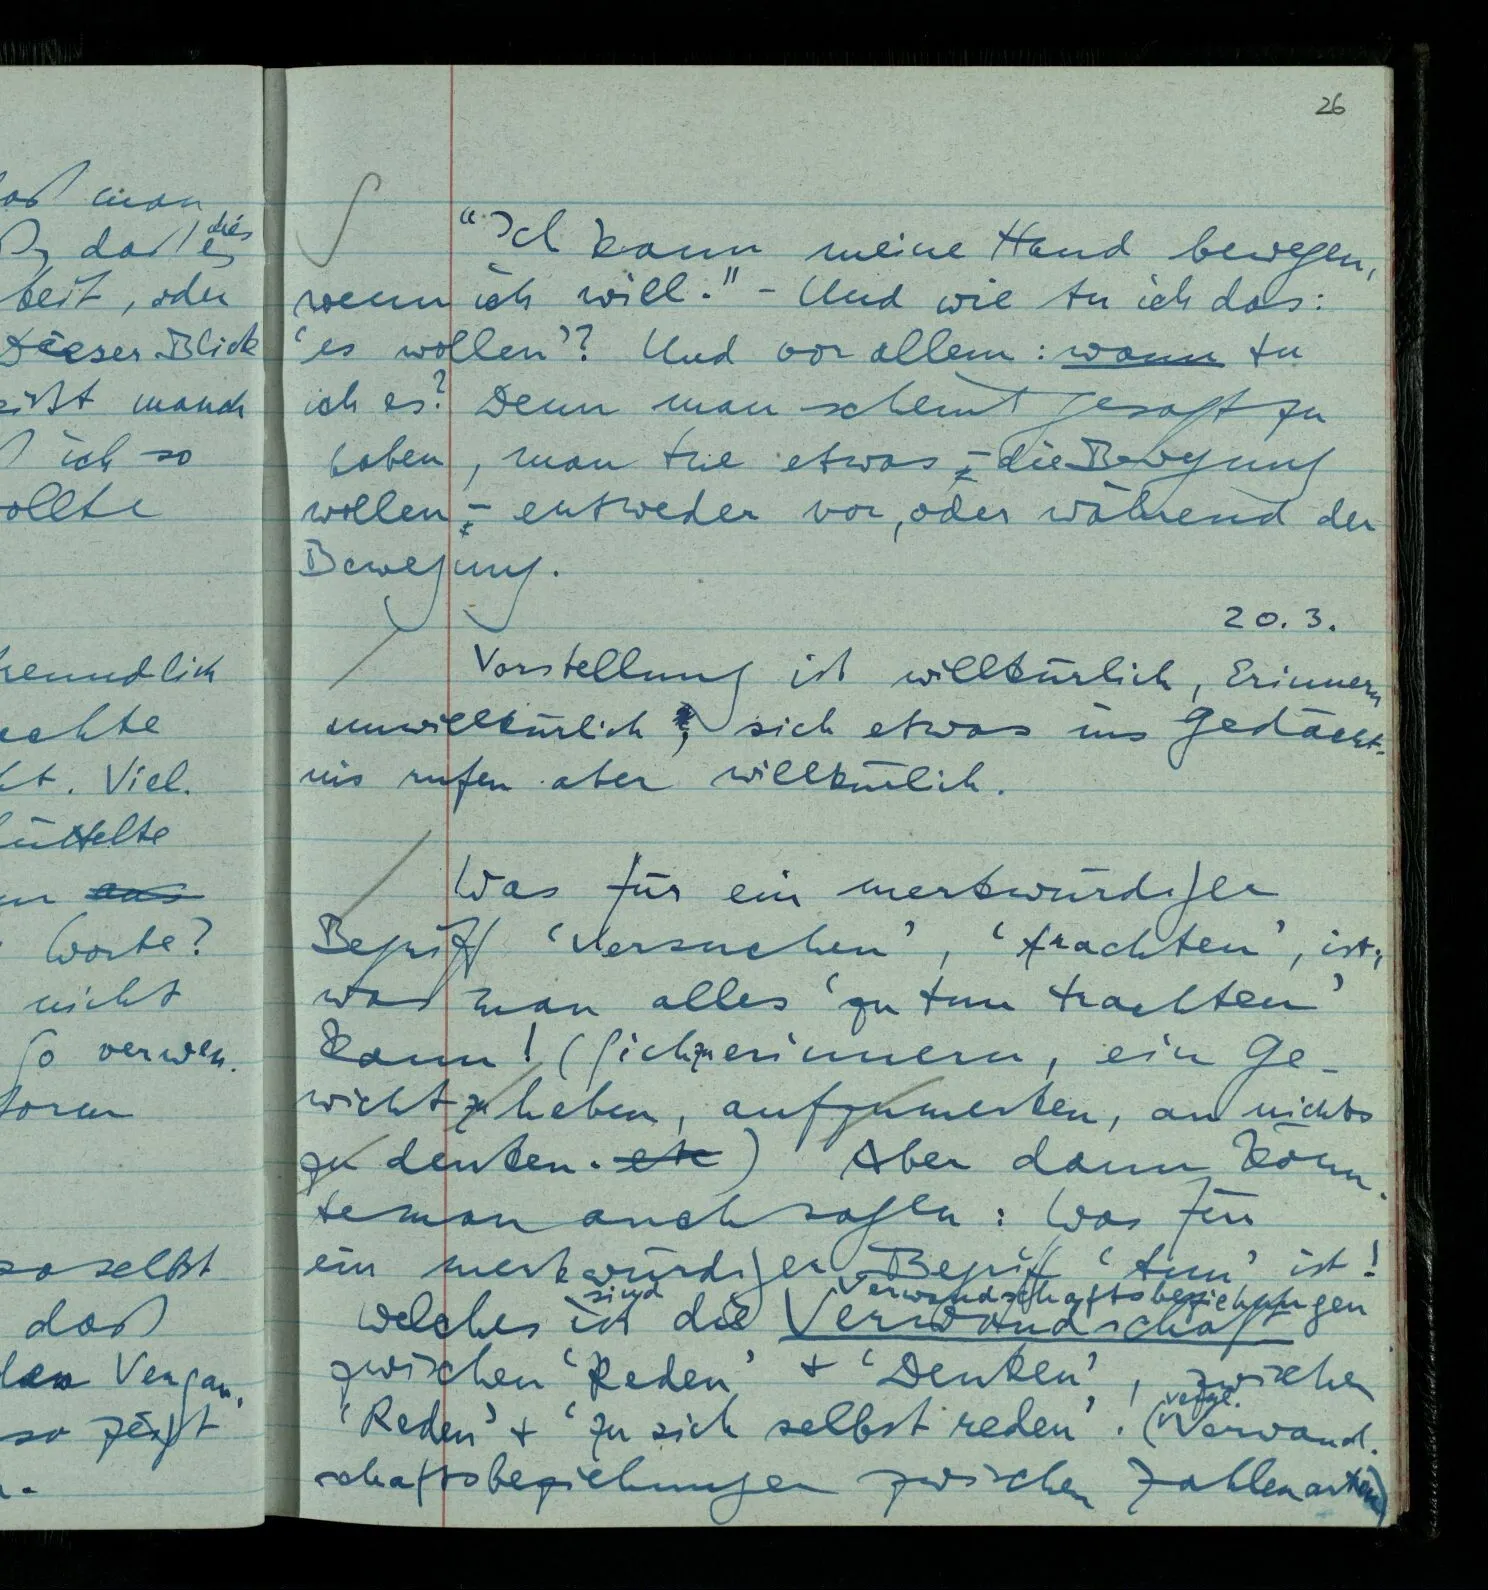 26
aß man
ß, daß es dies
beit, oder
Dieser Blick
eißt manch
ß ich so
ollte
freundlich
echte
kt. Viel.
üttelte
aus
Worte?
nicht
so verwen.
so selbst
daß
den Vergan.
so zeigt
"Ich kann meine Hand bewegen,
wenn ich will." – Und wie tu ich das:
'es wollen'? Und vor allem: wann tu
ich es? Denn man scheint gesagt zu
haben, man tue etwas – die Bewegung
wollen – entweder vor, oder während der
Bewegung.
20.3.
Vorstellung ist willkürlich, Erinnern
unwillkürlich; sich etwas ins Gedächt-
nis rufen aber willkürlich.
Was für ein merkwürdiger
Begriff 'versuchen', 'trachten', ist;
was man alles 'zu tun trachten'
kann! (Sich zu erinnern, ein Ge-
wicht zu heben, aufzumerken, an nichts
zu denken. etc) Aber dann könn-
te man auch sagen: Was für
ein merkwürdiger Begriff 'tun' ist!
sind Verwandschaftsbeziehungen
Welches ist die Verwandschaft
zwischen 'Reden' + 'Denken', zwischen
vergl.
'Reden' + 'zu sich selbst reden'. (Verwand-
schaftsbeziehungen zwischen Zahlenarten)